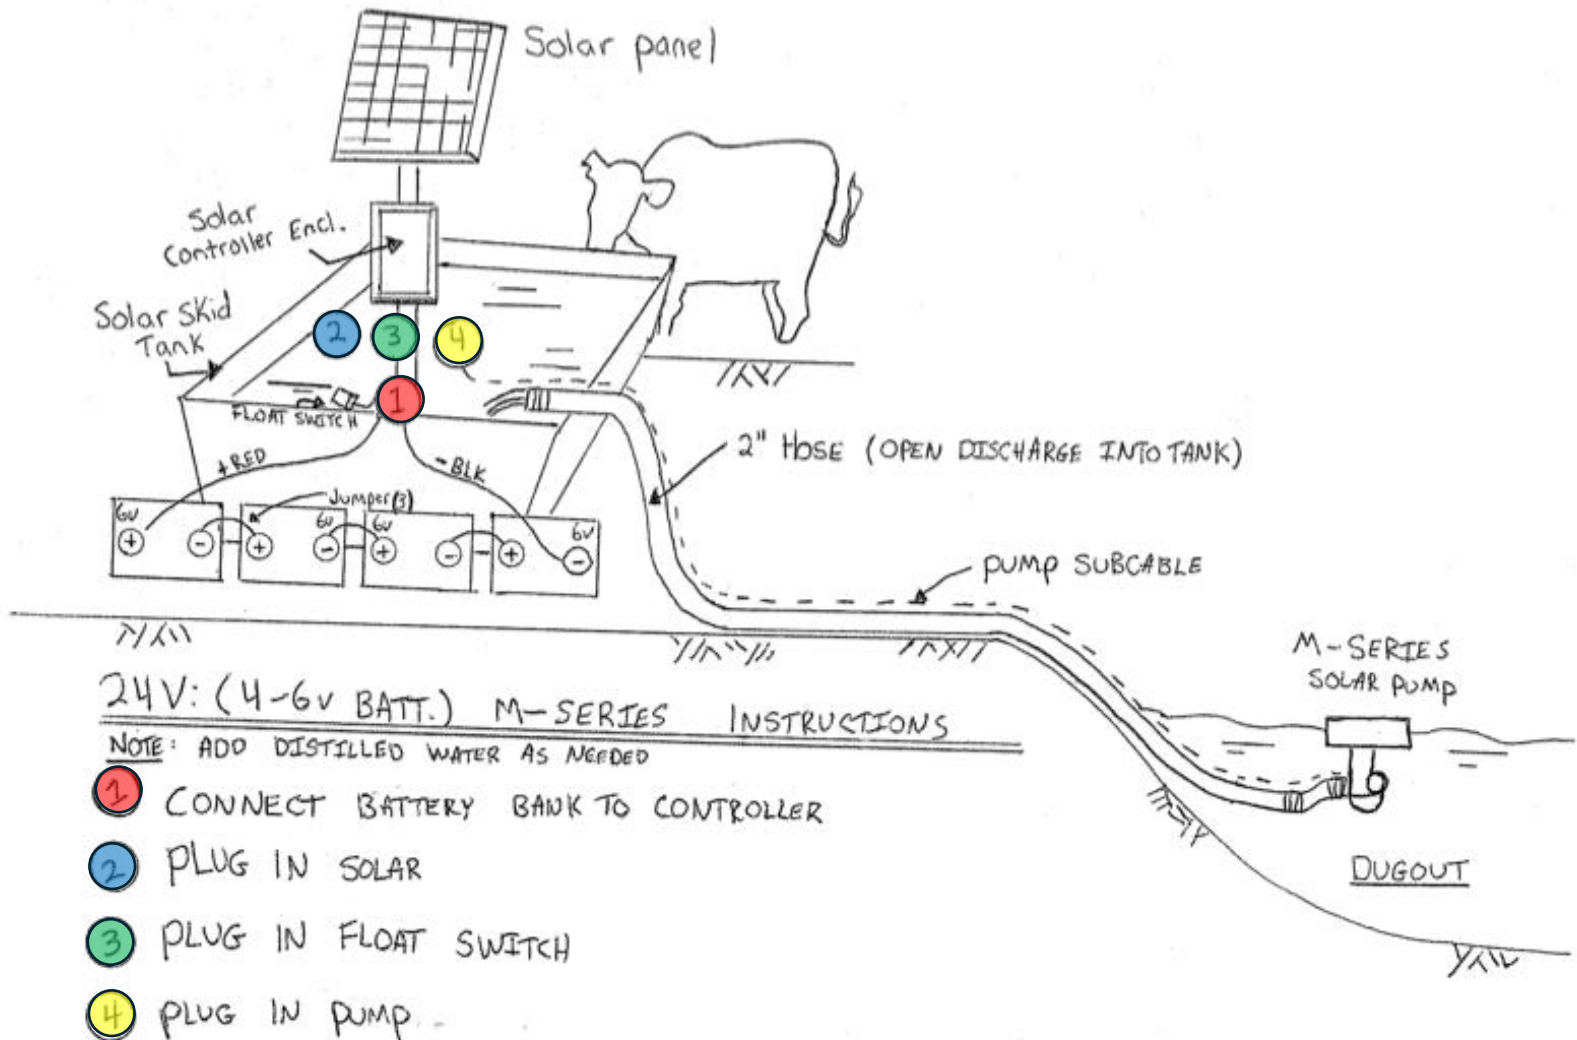 Solar panel
Solar
Controller Encl.
Solar Skid
Tank
2
3
4
1
FLOAT SWITCH
+RED
-BLK
Jumper(3)
6v
+
-
+
6v
-
6v
+
-
+
6v
-
2" HOSE (OPEN DISCHARGE INTO TANK)
PUMP SUBCABLE
M-SERIES
SOLAR PUMP
DUGOUT
24V: (4-6v BATT.) M-SERIES INSTRUCTIONS
NOTE: ADD DISTILLED WATER AS NEEDED
1 CONNECT BATTERY BANK TO CONTROLLER
2 PLUG IN SOLAR
3 PLUG IN FLOAT SWITCH
4 PLUG IN PUMP